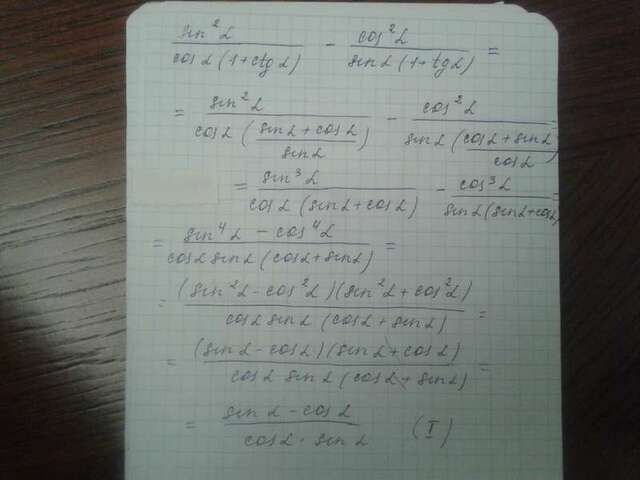 sin²α / cosα (1+ctgα) − cos²α / sinα (1+tgα) =
= sin²α / cosα ((sinα + cosα) / sinα) − cos²α / sinα ((cosα + sinα) / cosα)
= sin³α / cosα (sinα + cosα) − cos³α / sinα (sinα + cosα) =
= sin⁴α − cos⁴α / cosα sinα (cosα + sinα) =
= (sin²α − cos²α)(sin²α + cos²α) / cosα sinα (cosα + sinα) =
= (sinα − cosα)(sinα + cosα) / cosα sinα (cosα + sinα) =
= sinα − cosα / cosα · sinα (I)